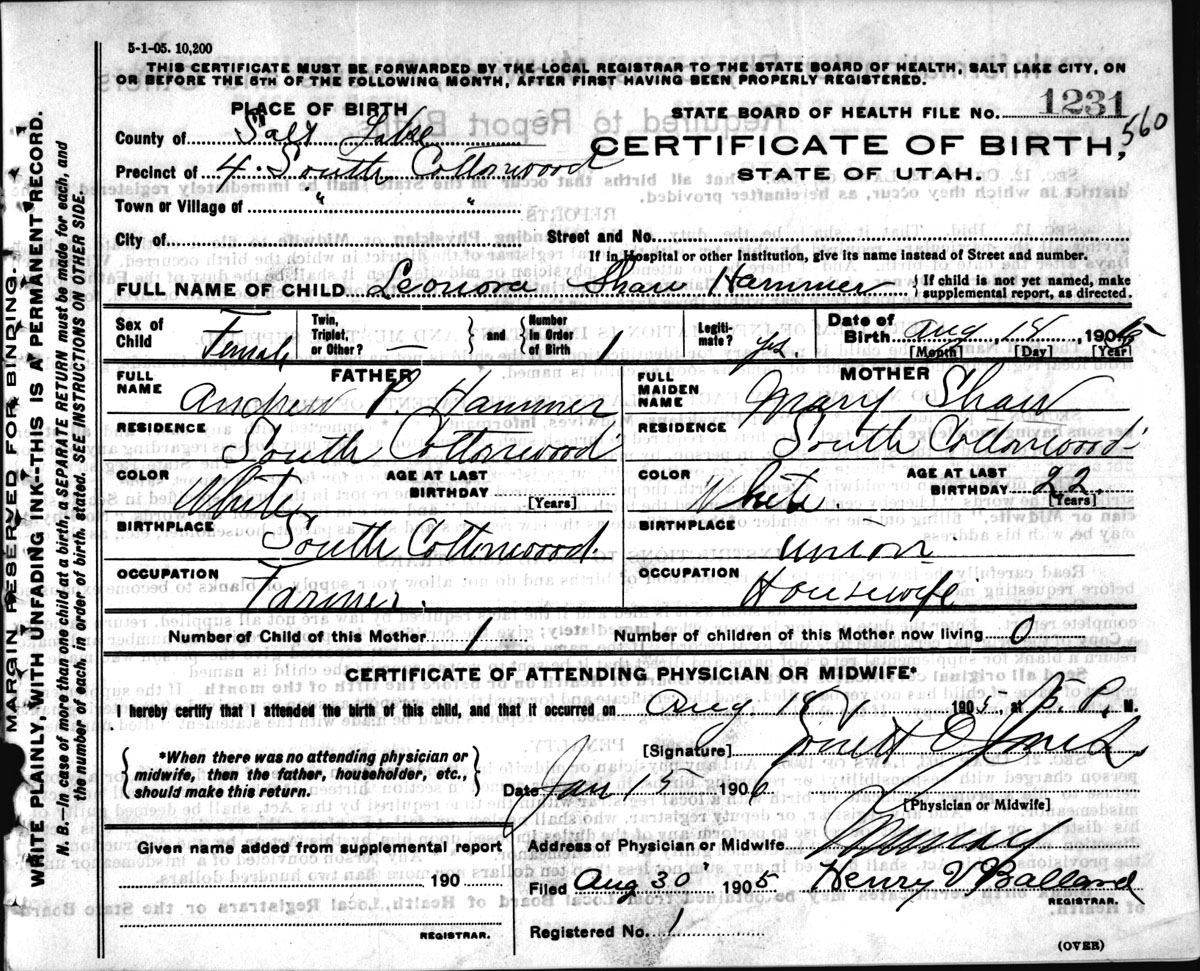 5-1-05. 10,200
THIS CERTIFICATE MUST BE FORWARDED BY THE LOCAL REGISTRAR TO THE STATE BOARD OF HEALTH, SALT LAKE CITY, ON
OR BEFORE THE 5TH OF THE FOLLOWING MONTH, AFTER FIRST HAVING BEEN PROPERLY REGISTERED.
PLACE OF BIRTH
STATE BOARD OF HEALTH FILE No. 1231
560
County of Salt Lake
CERTIFICATE OF BIRTH,
Precinct of 4. South Cottonwood
STATE OF UTAH.
Town or Village of " "
City of
Street and No.
If in Hospital or other Institution, give its name instead of Street and number.
FULL NAME OF CHILD Leonora Shaw Hammer
{ If child is not yet named, make
supplemental report, as directed.
Sex of Child Female
Twin, Triplet, or Other? —
} and { Number in Order of Birth 1
Legiti-mate? yes.
Date of Birth Aug 18 190
[Month] [Day] [Year]
FATHER
FULL NAME Andrew P. Hammer
RESIDENCE South Cottonwood
COLOR White
AGE AT LAST BIRTHDAY
[Years]
BIRTHPLACE South Cottonwood.
OCCUPATION Farmer.
MOTHER
FULL MAIDEN NAME Mary Shaw
RESIDENCE South Cottonwood
COLOR White.
AGE AT LAST BIRTHDAY 22
[Years]
BIRTHPLACE Union
OCCUPATION Housewife
Number of Child of this Mother 1
Number of children of this Mother now living 0
CERTIFICATE OF ATTENDING PHYSICIAN OR MIDWIFE*
I hereby certify that I attended the birth of this child, and that it occurred on Aug. 18 1905, at P. M.
{ *When there was no attending physician or
midwife, then the father, householder, etc.,
should make this return. }
[Signature] Jones
Date Jan 15 1906
[Physician or Midwife]
Given name added from supplemental report
190
REGISTRAR.
Address of Physician or Midwife Murray
Filed Aug 30 1905 Henry V Ballard
REGISTRAR.
Registered No. 1
(OVER)
MARGIN RESERVED FOR BINDING.
WRITE PLAINLY, WITH UNFADING INK--THIS IS A PERMANENT RECORD.
N. B.--In case of more than one child at a birth, a SEPARATE RETURN must be made for each, and
the number of each, in order of birth, stated. SEE INSTRUCTIONS ON OTHER SIDE.